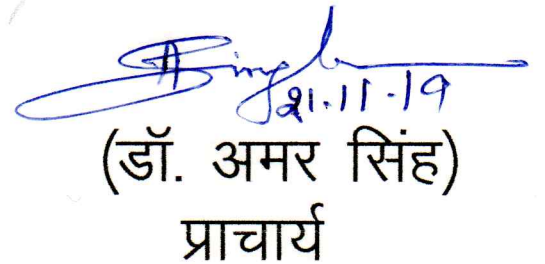 ASingh
21.11.19
(डॉ. अमर सिंह)
प्राचार्य